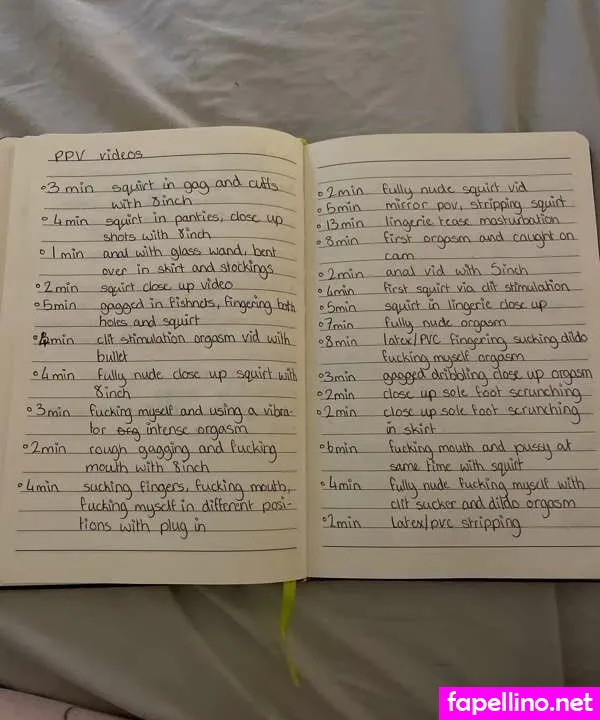 PPV videos
◦ 3 min squirt in gag and cuffs
with 8inch
◦ 4 min squirt in panties, close up
shots with 8inch
◦ 1 min anal with glass wand, bent
over in skirt and stockings
◦ 2min squirt close up video
◦ 5min gagged in fishnets, fingering both
holes and squirt
◦ 4min clit stimulation orgasm vid with
bullet
◦ 4min fully nude close up squirt with
8inch
◦ 3min fucking myself and using a vibra-
tor intense orgasm
◦ 2min rough gagging and fucking
mouth with 8inch
◦ 4min sucking fingers, fucking mouth,
fucking myself in different posi-
tions with plug in
◦ 2min fully nude squirt vid
◦ 5min mirror pov, stripping squirt
◦ 13min lingerie tease masturbation
◦ 8min first orgasm and caught on
cam
◦ 2min anal vid with 5inch
◦ 4min first squirt via clit stimulation
◦ 5min squirt in lingerie close up
◦ 7min fully nude orgasm
◦ 8min latex/PVC fingering, sucking dildo
fucking myself orgasm
◦ 3min gagged dribbling close up orgasm
◦ 2min close up sole foot scrunching
◦ 2min close up sole foot scrunching
in skirt
◦ 6min fucking mouth and pussy at
same time with squirt
◦ 4min fully nude fucking myself with
clit sucker and dildo orgasm
◦ 2min latex/pvc stripping
fapellino.net